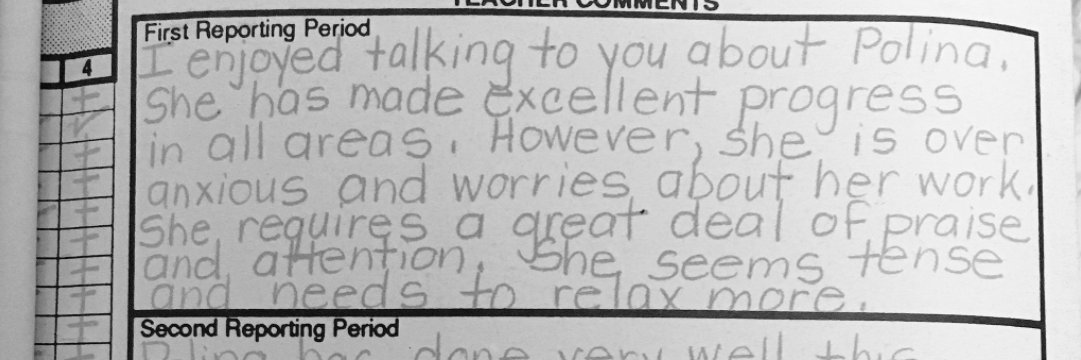 TEACHER COMMENTS
First Reporting Period
4
I enjoyed talking to you about Polina.
She has made excellent progress
in all areas. However, she is over
anxious and worries about her work.
She requires a great deal of praise
and attention. She seems tense
and needs to relax more.
Second Reporting Period
Polina has done very well this